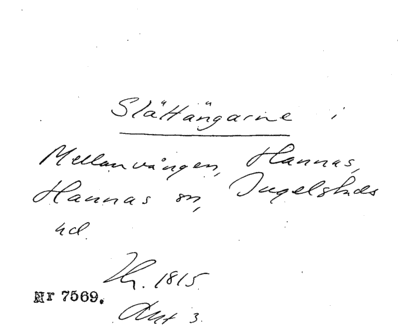 Slättängarne i
Mellanvången, Hannas,
Hannas sn, Ingelstads
hd.
Nr 7569.
Akt 3.